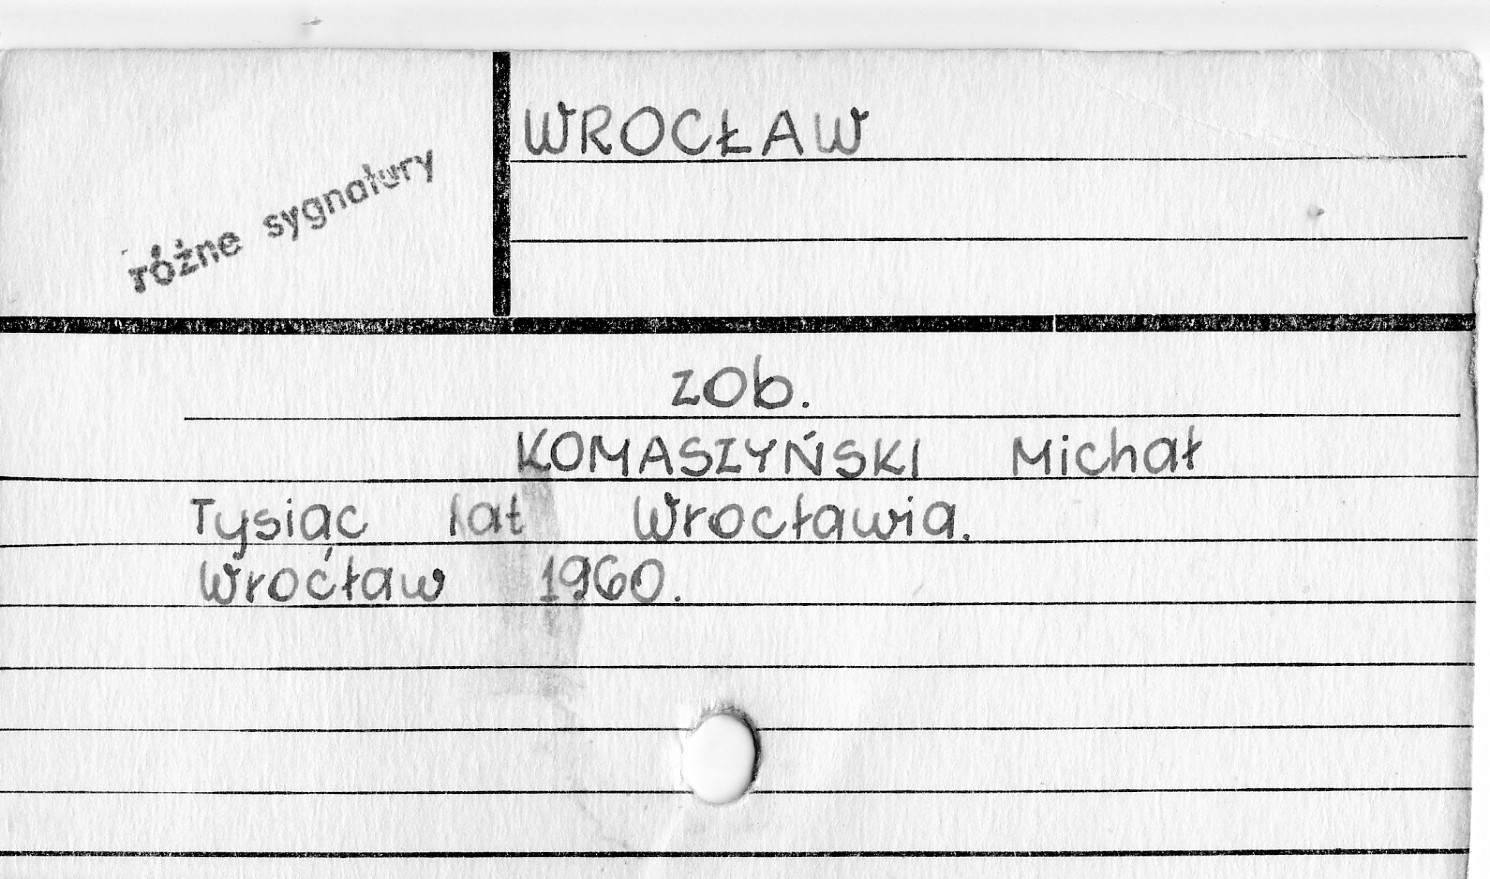 WROCŁAW
różne sygnatury
zob.
KOMASZYŃSKI Michał
Tysiąc lat Wrocławia.
Wrocław 1960.